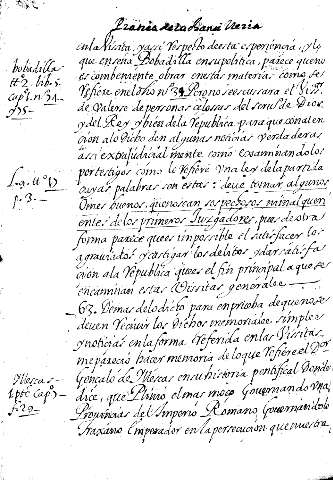 en la Visita, y assi respeto de esta esperiencia, y lo
bobadilla
que enseña Bobadilla en su politica, parece que no
es combeniente obrar en estas materias como se
refiere en el dho n. 34 Pero no se escussara el Visit.
de Valerse de personas celosas del serui.º de Dios,
y del Rey, y bien de la Republica para que con aten
cion a lo dicho den algunas noticias verdaderas
assi extrajudicial mente, como examinandolos
por testigos como lo refiere Vna ley de la partida
cuyas palabras son estas: deue tomar algunos
omes buenos, que no sean sospechosos nin mal quer
entes de los primeros Juzgadores, pues de otra
forma parece que es impossible el satisfacer los
agrauiados y castigar los delitos, y dar satisfa
cion a la Republica que es el fin principal a que se
encaminan estas Visitas generales
63. Demas de lo dicho para en prueba de que no se
deuen reciuir los dichos memoriales simples
y noticias en la forma referida en las Visitas
me parecio hacer memoria de lo que refiere el Dor
Gonçalo de Illescas en su historia pontifical Donde
Illescas
dice, que Plinio el mas moço Gouernando Vna
Prouincias del Imperio Romano, Gouernandolo
Trajano Emperador en la persecucion que nuestra